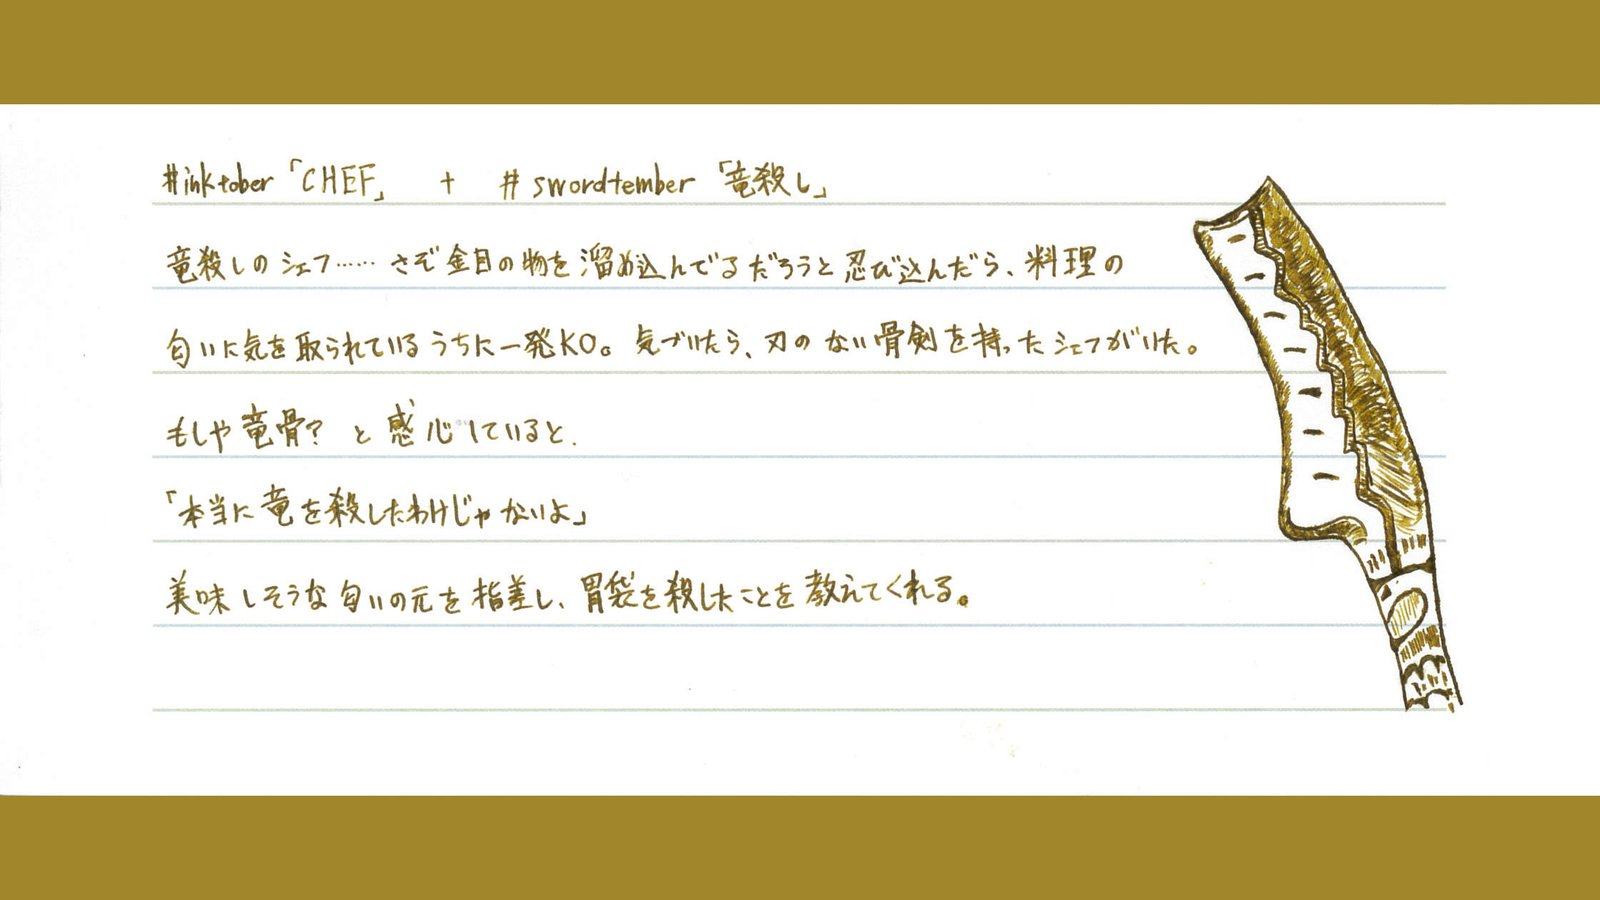 #inktober「CHEF」 + #swordtember「竜殺し」
竜殺しのシェフ……さぞ金目の物を溜め込んでるだろうと忍び込んだら、料理の
匂いに気を取られているうちに一発KO。気づいたら、刃のない骨剣を持ったシェフがいた。
もしや竜骨?と感心していると、
「本当に竜を殺したわけじゃないよ」
美味しそうな匂いの元を指差し、胃袋を殺したことを教えてくれる。